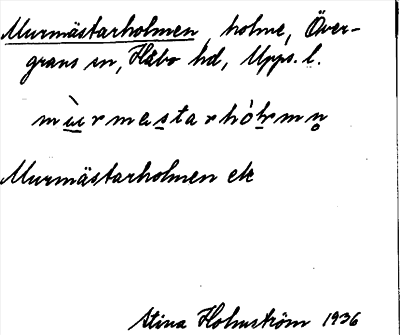 Murmästarholmen, holme, Över-
grans sn, Håbo hd, Upps. l.
mùrmestarhòlmn̥
Murmästarholmen ek
Stina Holmström 1936